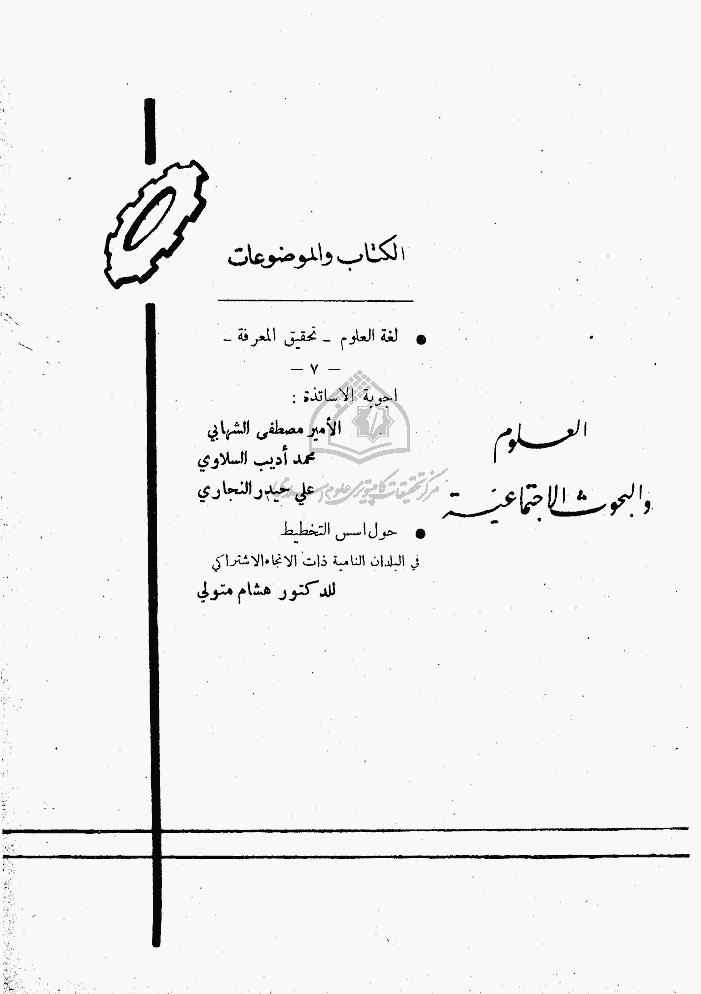 الكتاب والموضوعات
● لغة العلوم – تحقيق المعرفة –
– ٧ –
اجوبة الاساتذة :
الأمير مصطفى الشهابي
محمد أديب السلاوي
علي حيدر النجاري
● حول اسس التخطيط
في البلدان النامية ذات الاتجاه الاشتراكي
للدكتور هشام متولي
العلوم
والبحوث الاجتماعية
مركز تحقیقات کامپیوتری علوم اسلامی